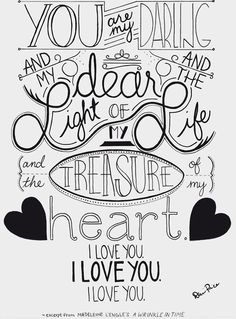 YOU are my DARLING
AND MY dear AND THE
Light OF MY Life
(and the TREASURE of my)
heart.
I LOVE YOU.
I LOVE YOU.
I LOVE YOU.
~ except from MADELEINE L'ENGLE'S A WRINKLE IN TIME